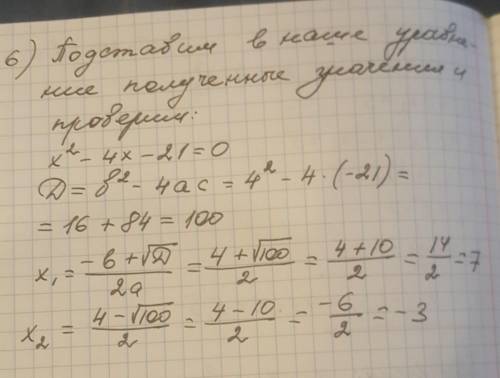 6) Подставим в наше уравне-
ние полученные значения и
проверим:
x² - 4x - 21 = 0
D = b² - 4ac = 4² - 4 · (-21) =
= 16 + 84 = 100
x₁ = (-b + √D)/2a = (4 + √100)/2 = (4 + 10)/2 = 14/2 = 7
x₂ = (4 - √100)/2 = (4 - 10)/2 = -6/2 = -3